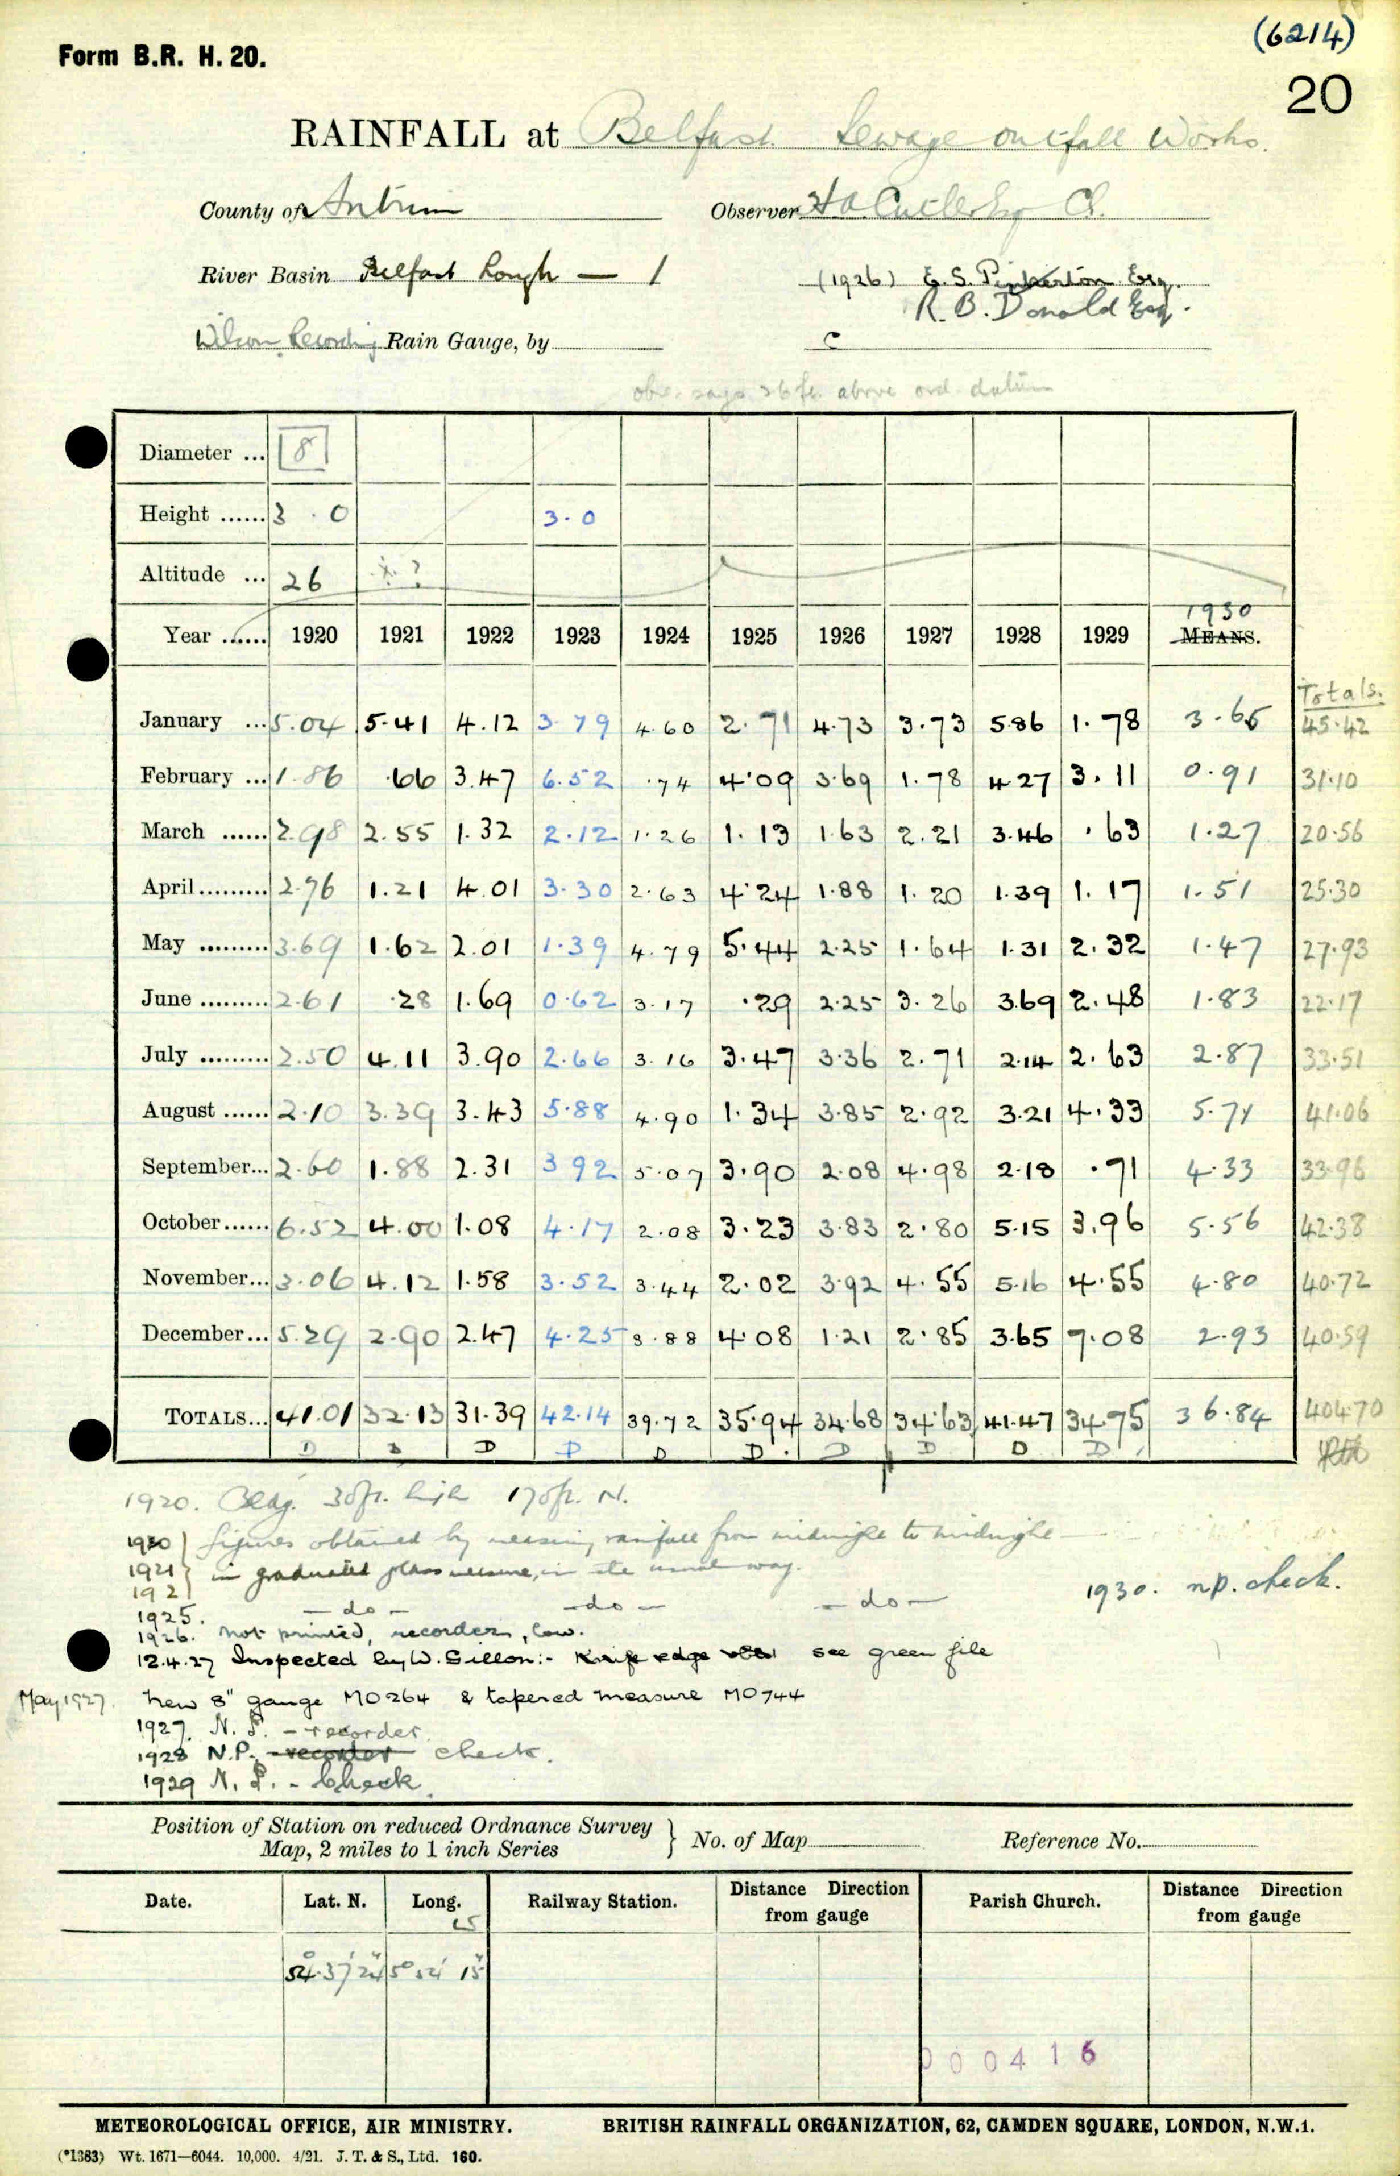 (6214)
Form B.R. H. 20.
20
RAINFALL at Belfast Sewage outfall Works.
County of Antrim Observer H A Cutler Esq CE.
River Basin Belfast Lough — 1 (1926) E. S. Pinkerton Esq.
R. B. Donald Esq.
Wilson Recording Rain Gauge, by C
obs. says 26 ft. above ord. datum
Diameter ... 8
Height ...... 3 . 0 3.0
Altitude ... 26 ?
1930
Year ...... 1920 1921 1922 1923 1924 1925 1926 1927 1928 1929 MEANS.
Totals.
January ... 5.04 5.41 4.12 3.79 4.60 2.71 4.73 3.73 5.86 1.78 3.65 45.42
February ... 1.86 .66 3.47 6.52 .74 4.09 3.69 1.78 4.27 3.11 0.91 31.10
March ...... 2.98 2.55 1.32 2.12 1.26 1.13 1.63 2.21 3.46 .63 1.27 20.56
April ......... 2.76 1.21 4.01 3.30 2.63 4.24 1.88 1.20 1.39 1.17 1.51 25.30
May ......... 3.69 1.62 2.01 1.39 4.79 5.44 2.25 1.64 1.31 2.32 1.47 27.93
June ......... 2.61 .28 1.69 0.62 3.17 .29 2.25 3.26 3.69 2.48 1.83 22.17
July ......... 2.50 4.11 3.90 2.66 3.16 3.47 3.36 2.71 2.14 2.63 2.87 33.51
August ...... 2.10 3.39 3.43 5.88 4.90 1.34 3.85 2.92 3.21 4.33 5.71 41.06
September... 2.60 1.88 2.31 3.92 5.07 3.90 2.08 4.98 2.18 .71 4.33 33.96
October...... 6.52 4.00 1.08 4.17 2.08 3.23 3.83 2.80 5.15 3.96 5.56 42.38
November... 3.06 4.12 1.58 3.52 3.44 2.02 3.92 4.55 5.16 4.55 4.80 40.72
December... 5.29 2.90 2.47 4.25 3.88 4.08 1.21 2.85 3.65 7.08 2.93 40.59
TOTALS... 41.01 32.13 31.39 42.14 39.72 35.94 34.68 34.63 41.47 34.75 36.84 404.70
D D D D D D. D D D D
1920. Bldg. 30ft. high 170ft. N.
1920 } figures obtained by measuring rainfall from midnight to midnight
1921 } in graduated glass measure, in the usual way.
1921
1925. — do — — do — — do —
1926. not printed, recorders, low.
1930. n.p. check.
12.4.27 Inspected by W. Gillon:- Knife edge see green file
May 1927. New 8" gauge MO264 & tapered measure MO744
1927. N. P. - recorder.
1928 N.P. - recorder check.
1929 N. P. - check.
Position of Station on reduced Ordnance Survey
Map, 2 miles to 1 inch Series } No. of Map Reference No.
Date. Lat. N. Long. Railway Station. Distance Direction from gauge Parish Church. Distance Direction from gauge
54° 37' 24" 5° 54' 15"
000416
METEOROLOGICAL OFFICE, AIR MINISTRY. BRITISH RAINFALL ORGANIZATION, 62, CAMDEN SQUARE, LONDON, N.W.1.
(*1383) Wt. 1671—6044. 10,000. 4/21. J. T. & S., Ltd. 160.